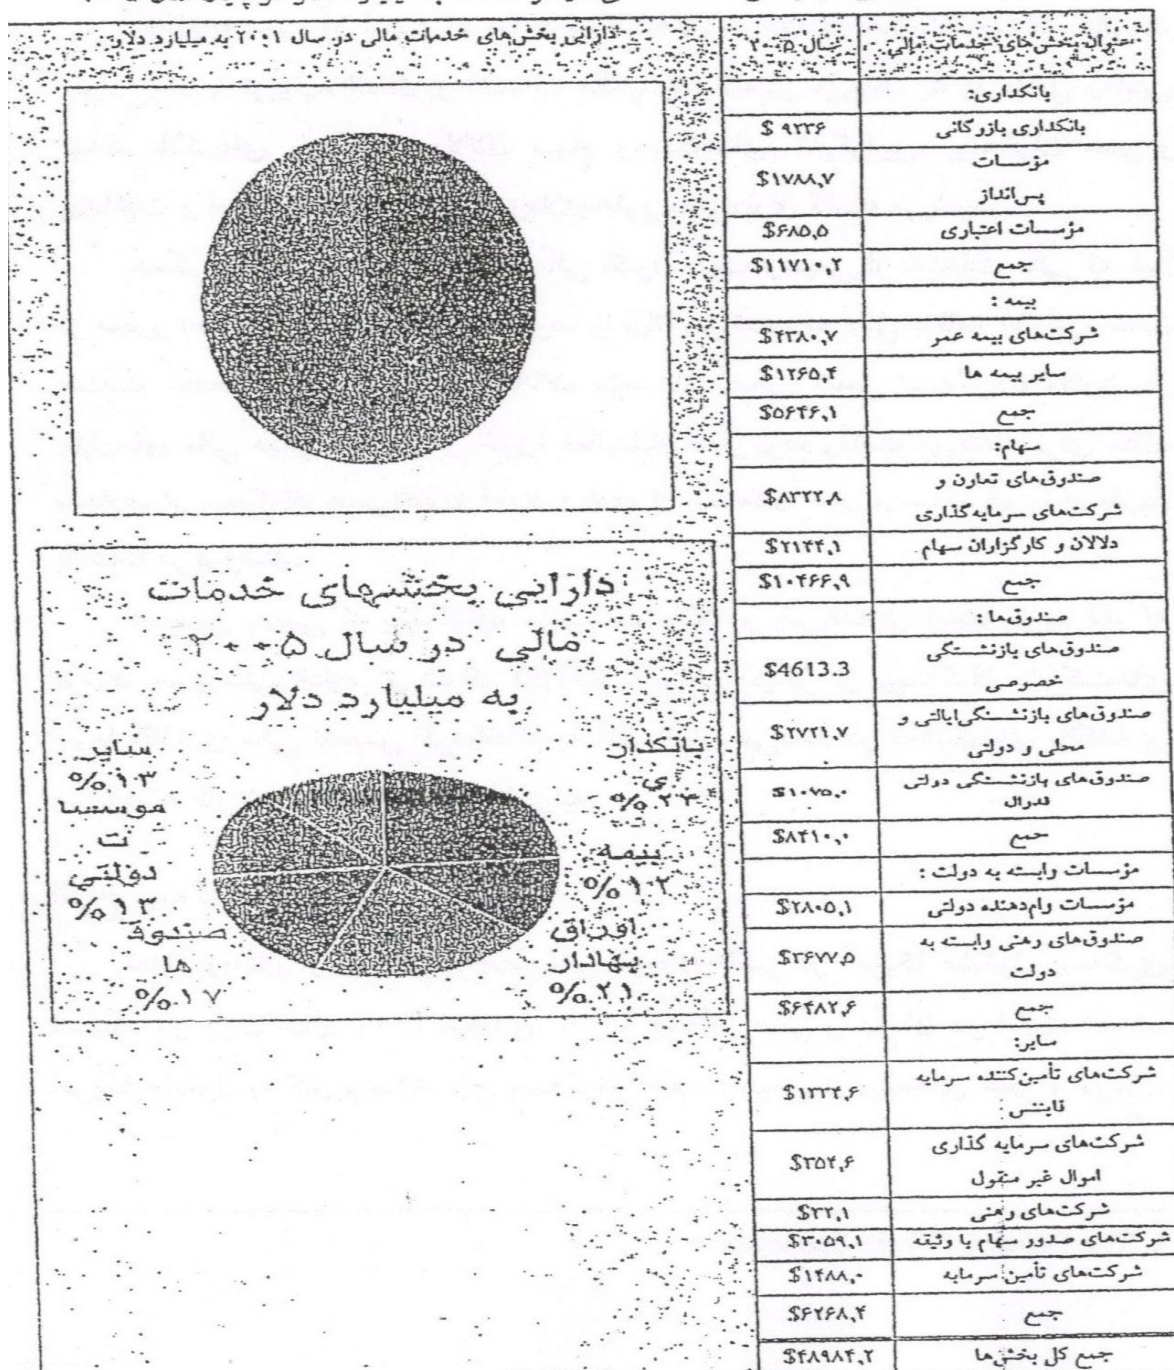 عنوان بخش‌های خدمات مالی	سال ۲۰۰۵	دارایی بخش‌های خدمات مالی در سال ۲۰۰۱ به میلیارد دلار
بانکداری:
بانکداری بازرگانی	$ ۹۲۳۶
مؤسسات
پس‌انداز	$۱۷۸۸,۷
مؤسسات اعتباری	$۶۸۵,۵
جمع	$۱۱۷۱۰,۲
بیمه :
شرکت‌های بیمه عمر	$۴۳۸۰,۷
سایر بیمه ها	$۱۲۶۵,۴
جمع	$۵۶۴۶,۱
سهام:
صندوق‌های تعاون و
شرکت‌های سرمایه‌گذاری	$۸۳۲۲,۸
دلالان و کارگزاران سهام	$۲۱۴۴,۱
جمع	$۱۰۴۶۶,۹
صندوق‌ها :
صندوق‌های بازنشستگی
خصوصی	$4613.3
صندوق‌های بازنشستگی‌ایالتی و
محلی و دولتی	$۲۷۲۱,۷
صندوق‌های بازنشستگی دولتی
فدرال	$۱۰۷۵,۰
جمع	$۸۴۱۰,۰
مؤسسات وابسته به دولت :
مؤسسات وام‌دهنده دولتی	$۲۸۰۵,۱
صندوق‌های رهنی وابسته به
دولت	$۳۶۷۷,۵
جمع	$۶۴۸۲,۶
سایر:
شرکت‌های تأمین‌کننده سرمایه
فایننس	$۱۳۳۴,۶
شرکت‌های سرمایه گذاری
اموال غیر منقول	$۳۵۴,۶
شرکت‌های رهنی	$۳۲,۱
شرکت‌های صدور سهام با وثیقه	$۳۰۵۹,۱
شرکت‌های تأمین سرمایه	$۱۴۸۸,۰
جمع	$۶۲۶۸,۴
جمع کل بخش‌ها	$۴۸۹۸۴,۲
دارایی بخشهای خدمات
مالی در سال ۲۰۰۵
به میلیارد دلار
بانکدار
ی
%۲۴
بیمه
%۱۲
اوراق
بهادار
%۲۱
صندوق
ها
%۱۷
موسسا
ت
دولتی
%۱۳
سایر
%۱۳